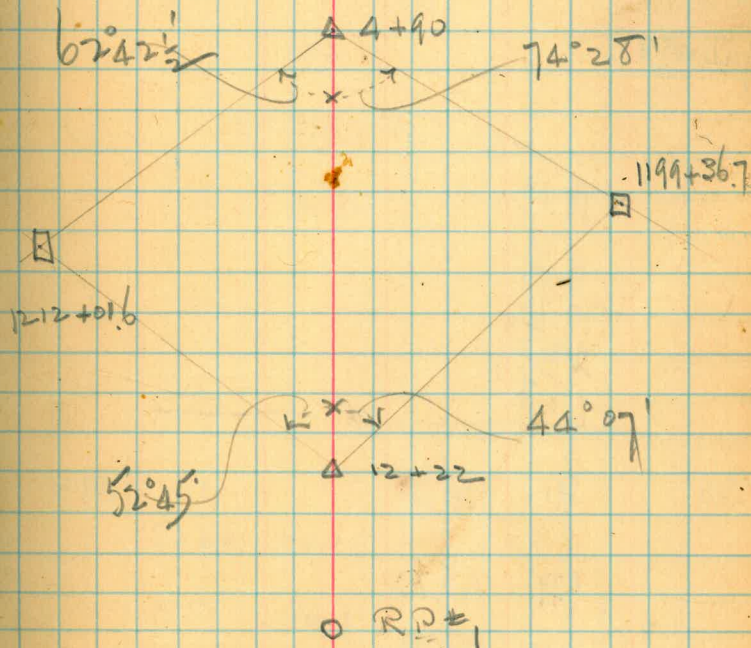 62°42½'
4+90
74°28'
1199+36.7
1212+01.6
44°07'
52°45'
12+22
RP#1